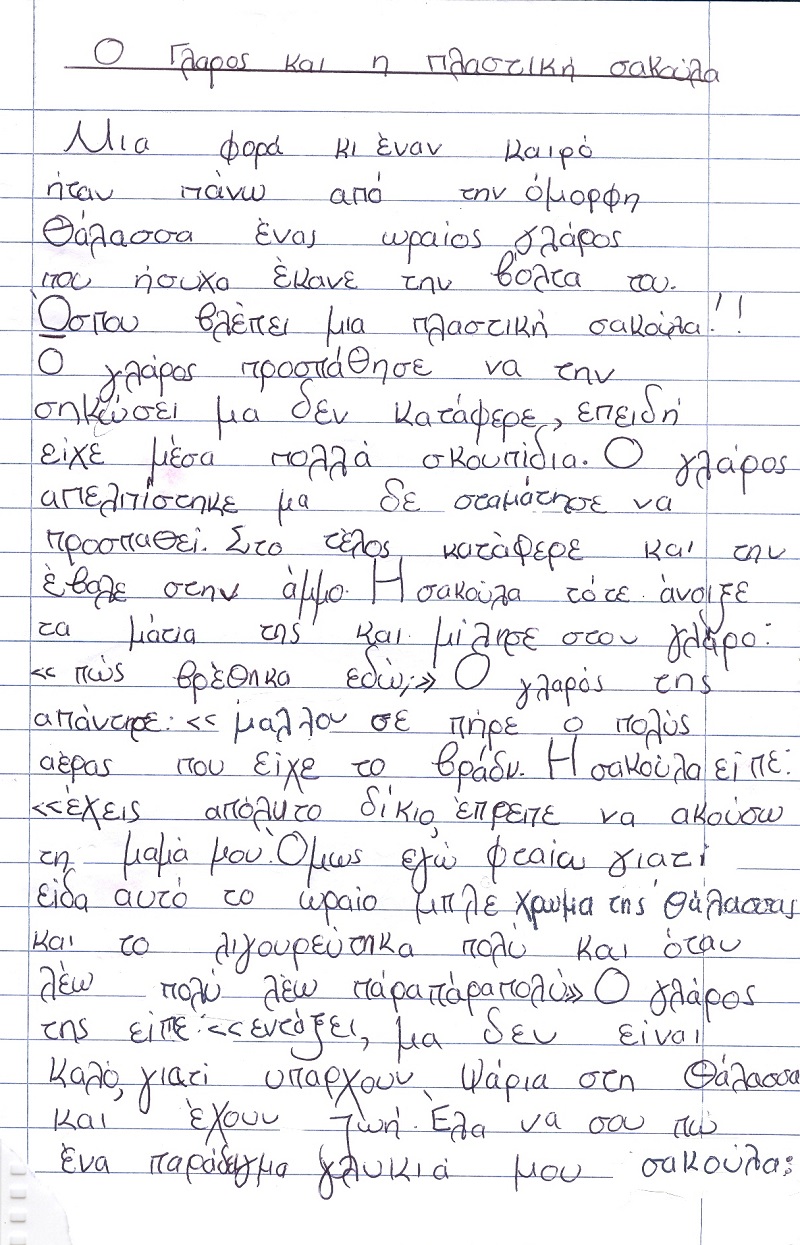 Ο Γλαρος και η πλαστική σακούλα
Μια φορά κι έναν καιρό
ήταν πάνω από την όμορφη
Θάλασσα ένας ωραίος γλάρος
που ήσυχα έκανε την βόλτα του.
Ώσπου βλέπει μια πλαστική σακούλα!!!
Ο γλάρος προσπάθησε να την
σηκώσει μα δεν κατάφερε, επειδή
είχε μέσα πολλά σκουπίδια. Ο γλάρος
απελπίστηκε μα δε σταμάτησε να
προσπαθεί. Στο τέλος κατάφερε και την
έβαλε στην άμμο. Η σακούλα τότε άνοιξε
τα μάτια της και μίλησε στον γλάρο:
«πώς βρέθηκα εδώ;» Ο γλαρός της
απάντησε: «μαλλον σε πήρε ο πολύς
αέρας που είχε το βράδυ. Η σακούλα είπε:
«έχεις απόλυτο δίκιο, έπρεπε να ακούσω
τη μαμά μου. Όμως εγώ φταίω γιατί
είδα αυτό το ωραίο μπλε χρωμα της θάλασσας
και το λιγουρεύτηκα πολύ και όταν
λέω πολύ λέω πάραπάραπολύ» Ο γλάρος
της είπε: «εντάξει, μα δεν είναι
καλό, γιατί υπαρχουν ψάρια στη Θάλασσα
και έχουν ζωή. Έλα να σου πω
ένα παράδειγμα γλυκιά μου σακούλα: